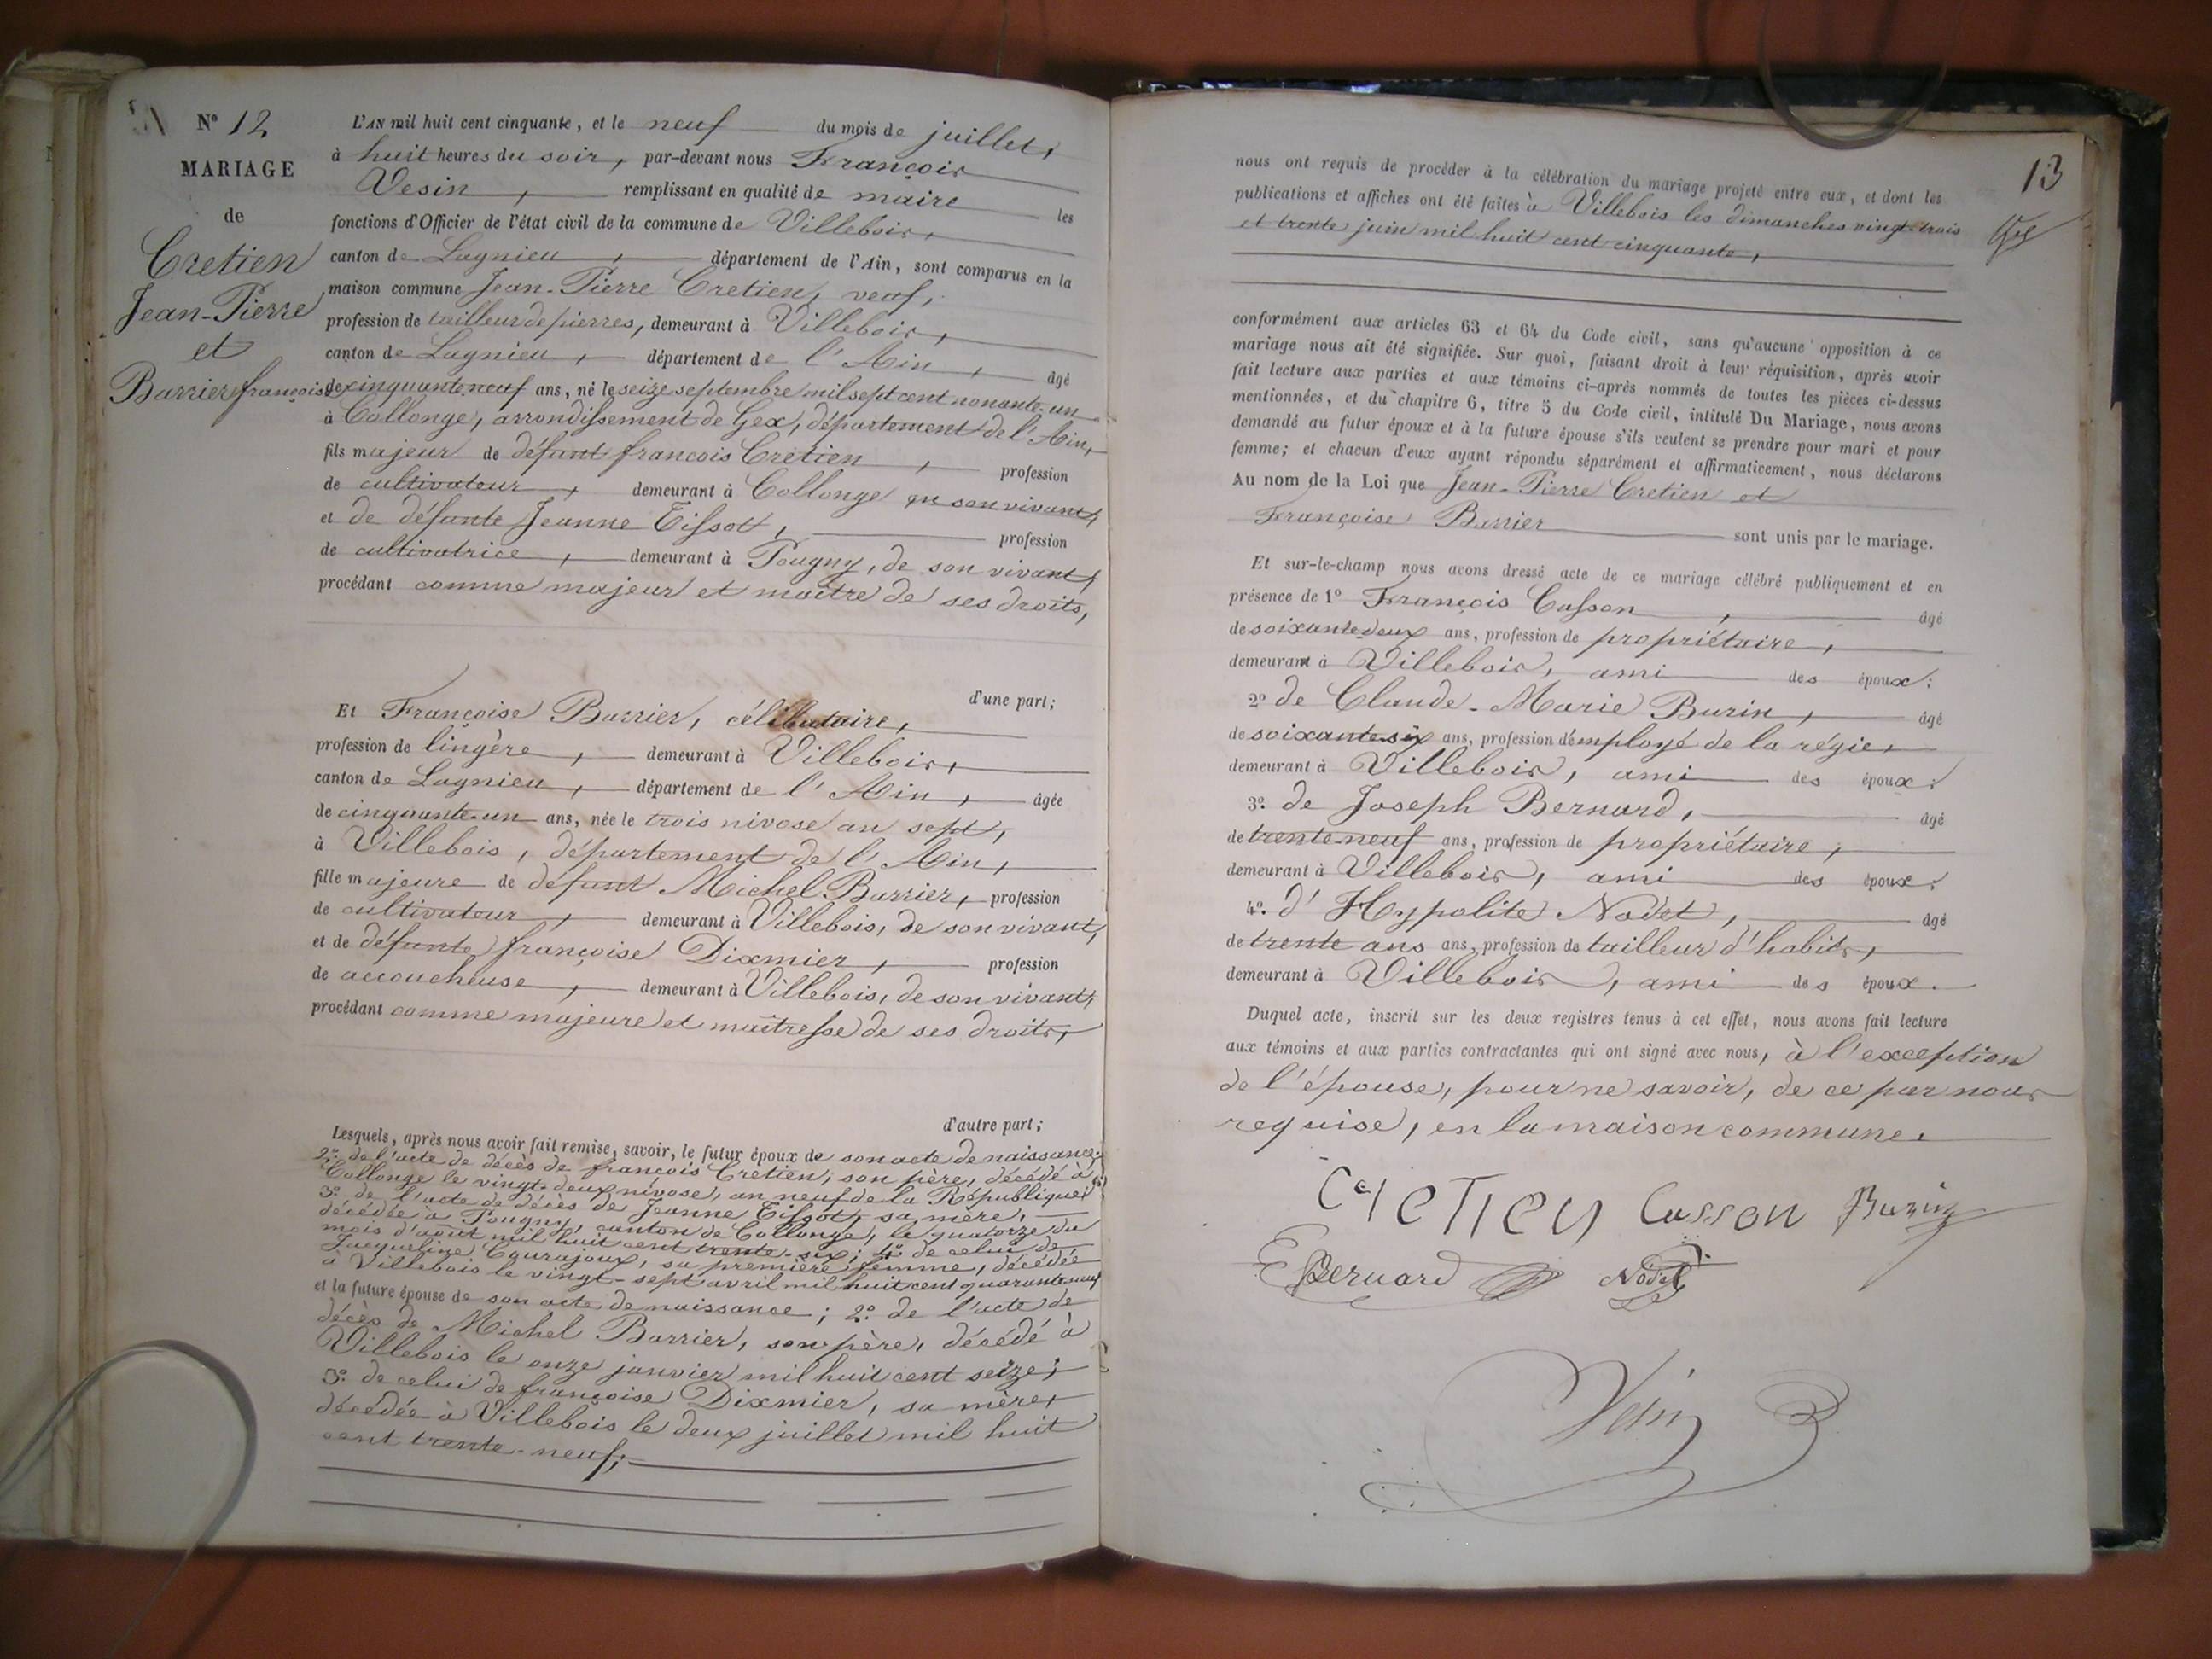 N° 12
MARIAGE
de
Cretien
Jean-Pierre
et
Barrier françoise
L'AN mil huit cent cinquante, et le neuf du mois de juillet,
à huit heures du soir, par-devant nous François
Vesin, remplissant en qualité de maire les
fonctions d'Officier de l'état civil de la commune de Villebois,
canton de Lagnieu, département de l'Ain, sont comparus en la
maison commune Jean-Pierre Cretien, veuf,
profession de tailleur de pierres, demeurant à Villebois,
canton de Lagnieu, département de l'Ain, âgé
de cinquante neuf ans, né le seize septembre mil sept cent nonante-un
à Collonge, arrondissement de Gex, département de l'Ain,
fils majeur de défunt françois Cretien, profession
de cultivateur, demeurant à Collonge en son vivant,
et de défunte Jeanne Tissot, profession
de cultivatrice, demeurant à Pougny, de son vivant,
procédant comme majeur et maître de ses droits,
d'une part;
Et Françoise Barrier, célibataire,
profession de lingère, demeurant à Villebois,
canton de Lagnieu, département de l'Ain, âgée
de cinquante-un ans, née le trois nivose an sept,
à Villebois, département de l'Ain,
fille majeure de défunt Michel Barrier, profession
de cultivateur, demeurant à Villebois, de son vivant,
et de défunte françoise Dixmier, profession
de accoucheuse, demeurant à Villebois, de son vivant,
procédant comme majeure et maîtresse de ses droits,
d'autre part;
Lesquels, après nous avoir fait remise, savoir, le futur époux de son acte de naissance;
2° de l'acte de décès de françois Cretien, son père, décédé à
Collonge le vingt-deux nivose, an neuf de la République;
3° de l'acte de décès de Jeanne Tissot, sa mère,
décédée à Pougny, canton de Collonge, le quatorze du
mois d'août mil huit cent trente-six; 4° de celui de
Jacqueline Courajoux, sa première femme, décédée
à Villebois le vingt-sept avril mil huit cent quarante neuf
et la future épouse de son acte de naissance; 2° de l'acte de
décès de Michel Barrier, son père, décédé à
Villebois le onze janvier mil huit cent seize;
3° de celui de françoise Dixmier, sa mère,
décédée à Villebois le deux juillet mil huit
cent trente-neuf;
13
nous ont requis de procéder à la célébration du mariage projeté entre eux, et dont les
publications et affiches ont été faites à Villebois les dimanches vingt-trois
et trente juin mil huit cent cinquante,
conformément aux articles 63 et 64 du Code civil, sans qu'aucune opposition à ce
mariage nous ait été signifiée. Sur quoi, faisant droit à leur réquisition, après avoir
fait lecture aux parties et aux témoins ci-après nommés de toutes les pièces ci-dessus
mentionnées, et du chapitre 6, titre 5 du Code civil, intitulé Du Mariage, nous avons
demandé au futur époux et à la future épouse s'ils veulent se prendre pour mari et pour
femme; et chacun d'eux ayant répondu séparément et affirmativement, nous déclarons
Au nom de la Loi que Jean-Pierre Cretien et
Françoise Barrier sont unis par le mariage.
Et sur-le-champ nous avons dressé acte de ce mariage célébré publiquement et en
présence de 1° François Casson, âgé
de soixante deux ans, profession de propriétaire,
demeurant à Villebois, ami des époux;
2° de Claude-Marie Burin, âgé
de soixante six ans, profession d'employé de la régie,
demeurant à Villebois, ami des époux;
3° de Joseph Bernard, âgé
de trente neuf ans, profession de propriétaire,
demeurant à Villebois, ami des époux;
4° d'Hypolite Nodet, âgé
de trente ans ans, profession de tailleur d'habits,
demeurant à Villebois, ami des époux.
Duquel acte, inscrit sur les deux registres tenus à cet effet, nous avons fait lecture
aux témoins et aux parties contractantes qui ont signé avec nous, à l'exception
de l'épouse, pour ne savoir, de ce par nous
requise, en la maison commune.
Cretien Casson Burin
Bernard Nodet
Vesin